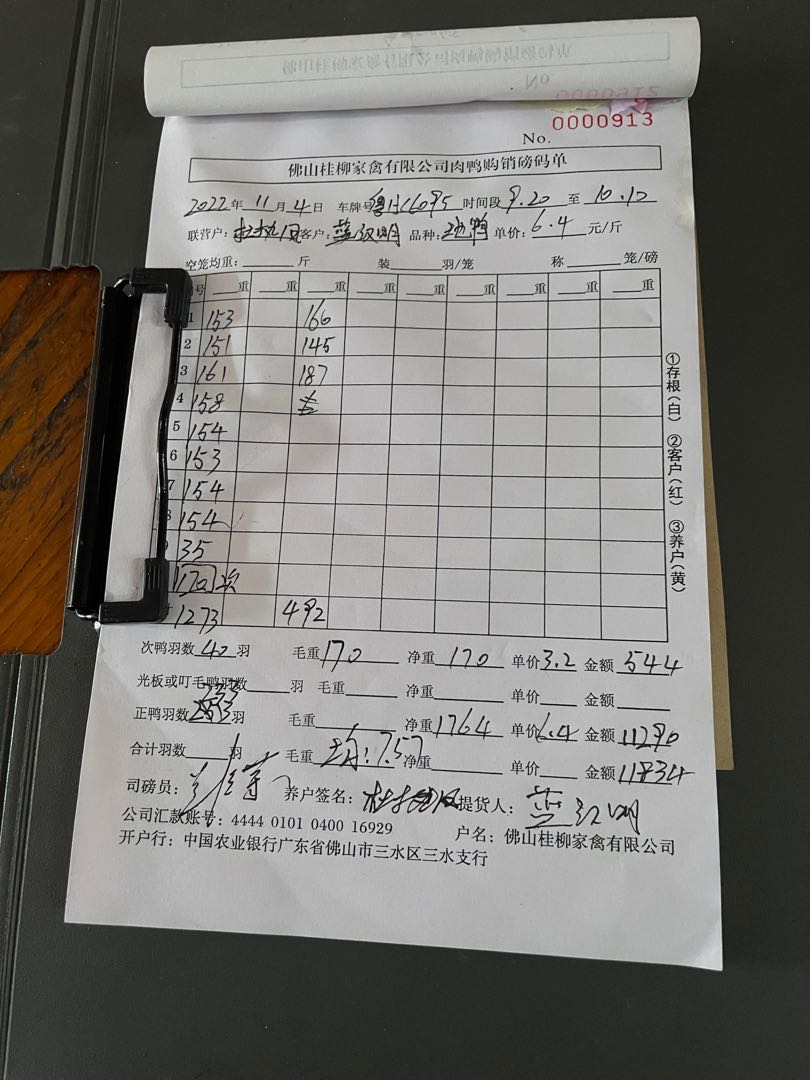 0000913
No.
佛山桂柳家禽有限公司肉鸭购销磅码单
2022年 11月 4日 车牌号粤H16095 时间段 9.20 至 10.10
联营户: 客户:蓝汉明 品种: 鸭 单价: 6.4 元/斤
空笼均重: 斤 装 羽/笼 称 笼/磅
号 重 重 重 重 重 重 重 重 重
1 153 166
2 151 145
3 161 187
4 158
5 154
6 153
7 154
8 154
35
170 次
1273 492
次鸭羽数 40 羽 毛重 170 净重 170 单价 3.2 金额 544
光板或叮毛鸭羽数 羽 毛重 净重 单价 金额
233
正鸭羽数 羽 毛重 净重 1764 单价 6.4 金额 11290
合计羽数 羽 毛重 均:7.57 净重 单价 金额 11834
司磅员: 养户签名: 提货人: 蓝汉明
公司汇款账号: 4444 0101 0400 16929 户名: 佛山桂柳家禽有限公司
开户行: 中国农业银行广东省佛山市三水区三水支行
①存根(白) ②客户(红) ③养户(黄)